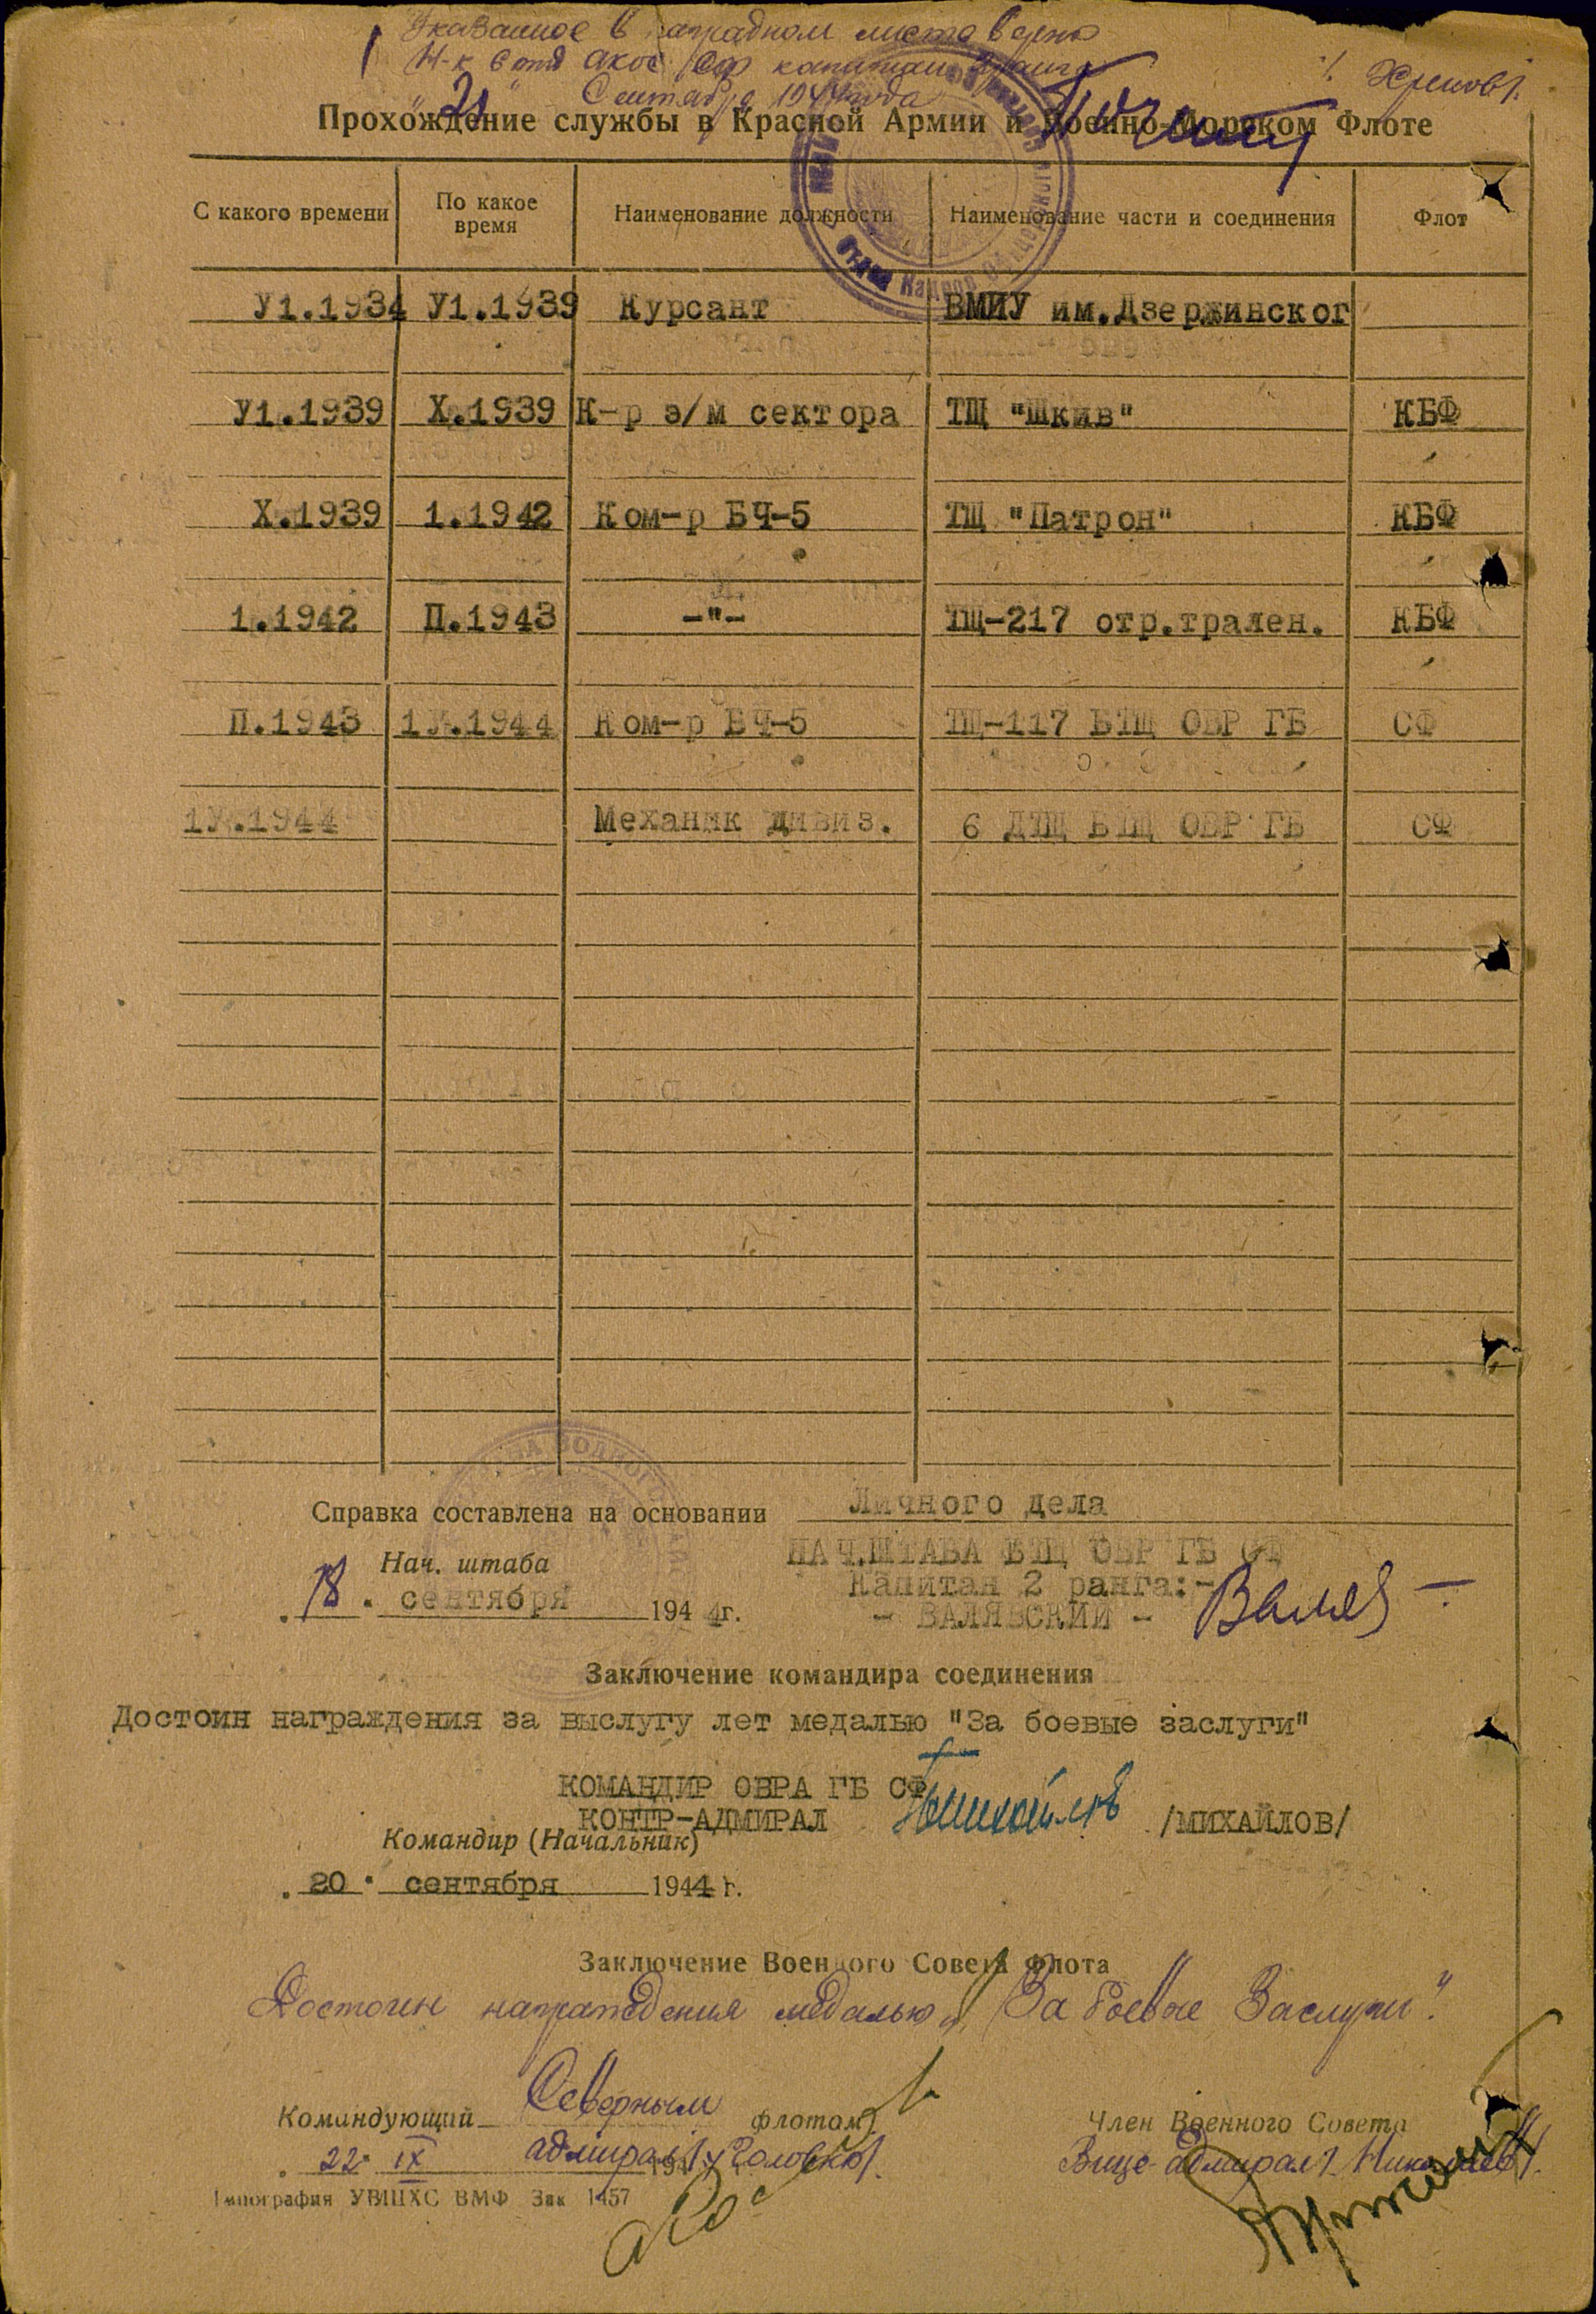 Указанное в наградном листе верно
Н-к 6 отд АКОС СФ капитан
/Хренов/.
"21" Сентября 1944 года
Прохождение службы в Красной Армии и Военно-Морском Флоте
С какого времени По какое время Наименование должности Наименование части и соединения Флот
У1.1934 У1.1939 Курсант ВМИУ им.Дзержинског
У1.1939 Х.1939 К-р э/м сектора ТЩ "Шкив" КБФ
Х.1939 1.1942 Ком-р БЧ-5 ТЩ "Патрон" КБФ
1.1942 П.1943 -"- ТЩ-217 отр.трален. КБФ
П.1943 1У.1944 Ком-р БЧ-5 ТЩ-117 БТЩ ОВР ГБ СФ
1У.1944 Механик дивиз. 6 ДТЩ БТЩ ОВР ГБ СФ
Справка составлена на основании Личного дела
Нач. штаба НАЧ.ШТАБА БТЩ ОВР ГБ СФ
Капитан 2 ранга:-
"18" сентября 1944г.
- ВАЛЯВСКИЙ -
Заключение командира соединения
Достоин награждения за выслугу лет медалью "За боевые заслуги"
КОМАНДИР ОВРА ГБ СФ
КОНТР-АДМИРАЛ /МИХАЙЛОВ/
Командир (Начальник)
"20" сентября 1944 г.
Заключение Военного Совета флота
Достоин награждения медалью "За боевые Заслуги".
Командующий Северным флотом
Член Военного Совета
"22" IX 194 адмирал /Головко/.
Вице-адмирал /Николаев/.
Типография УВМХС ВМФ Зак 1457